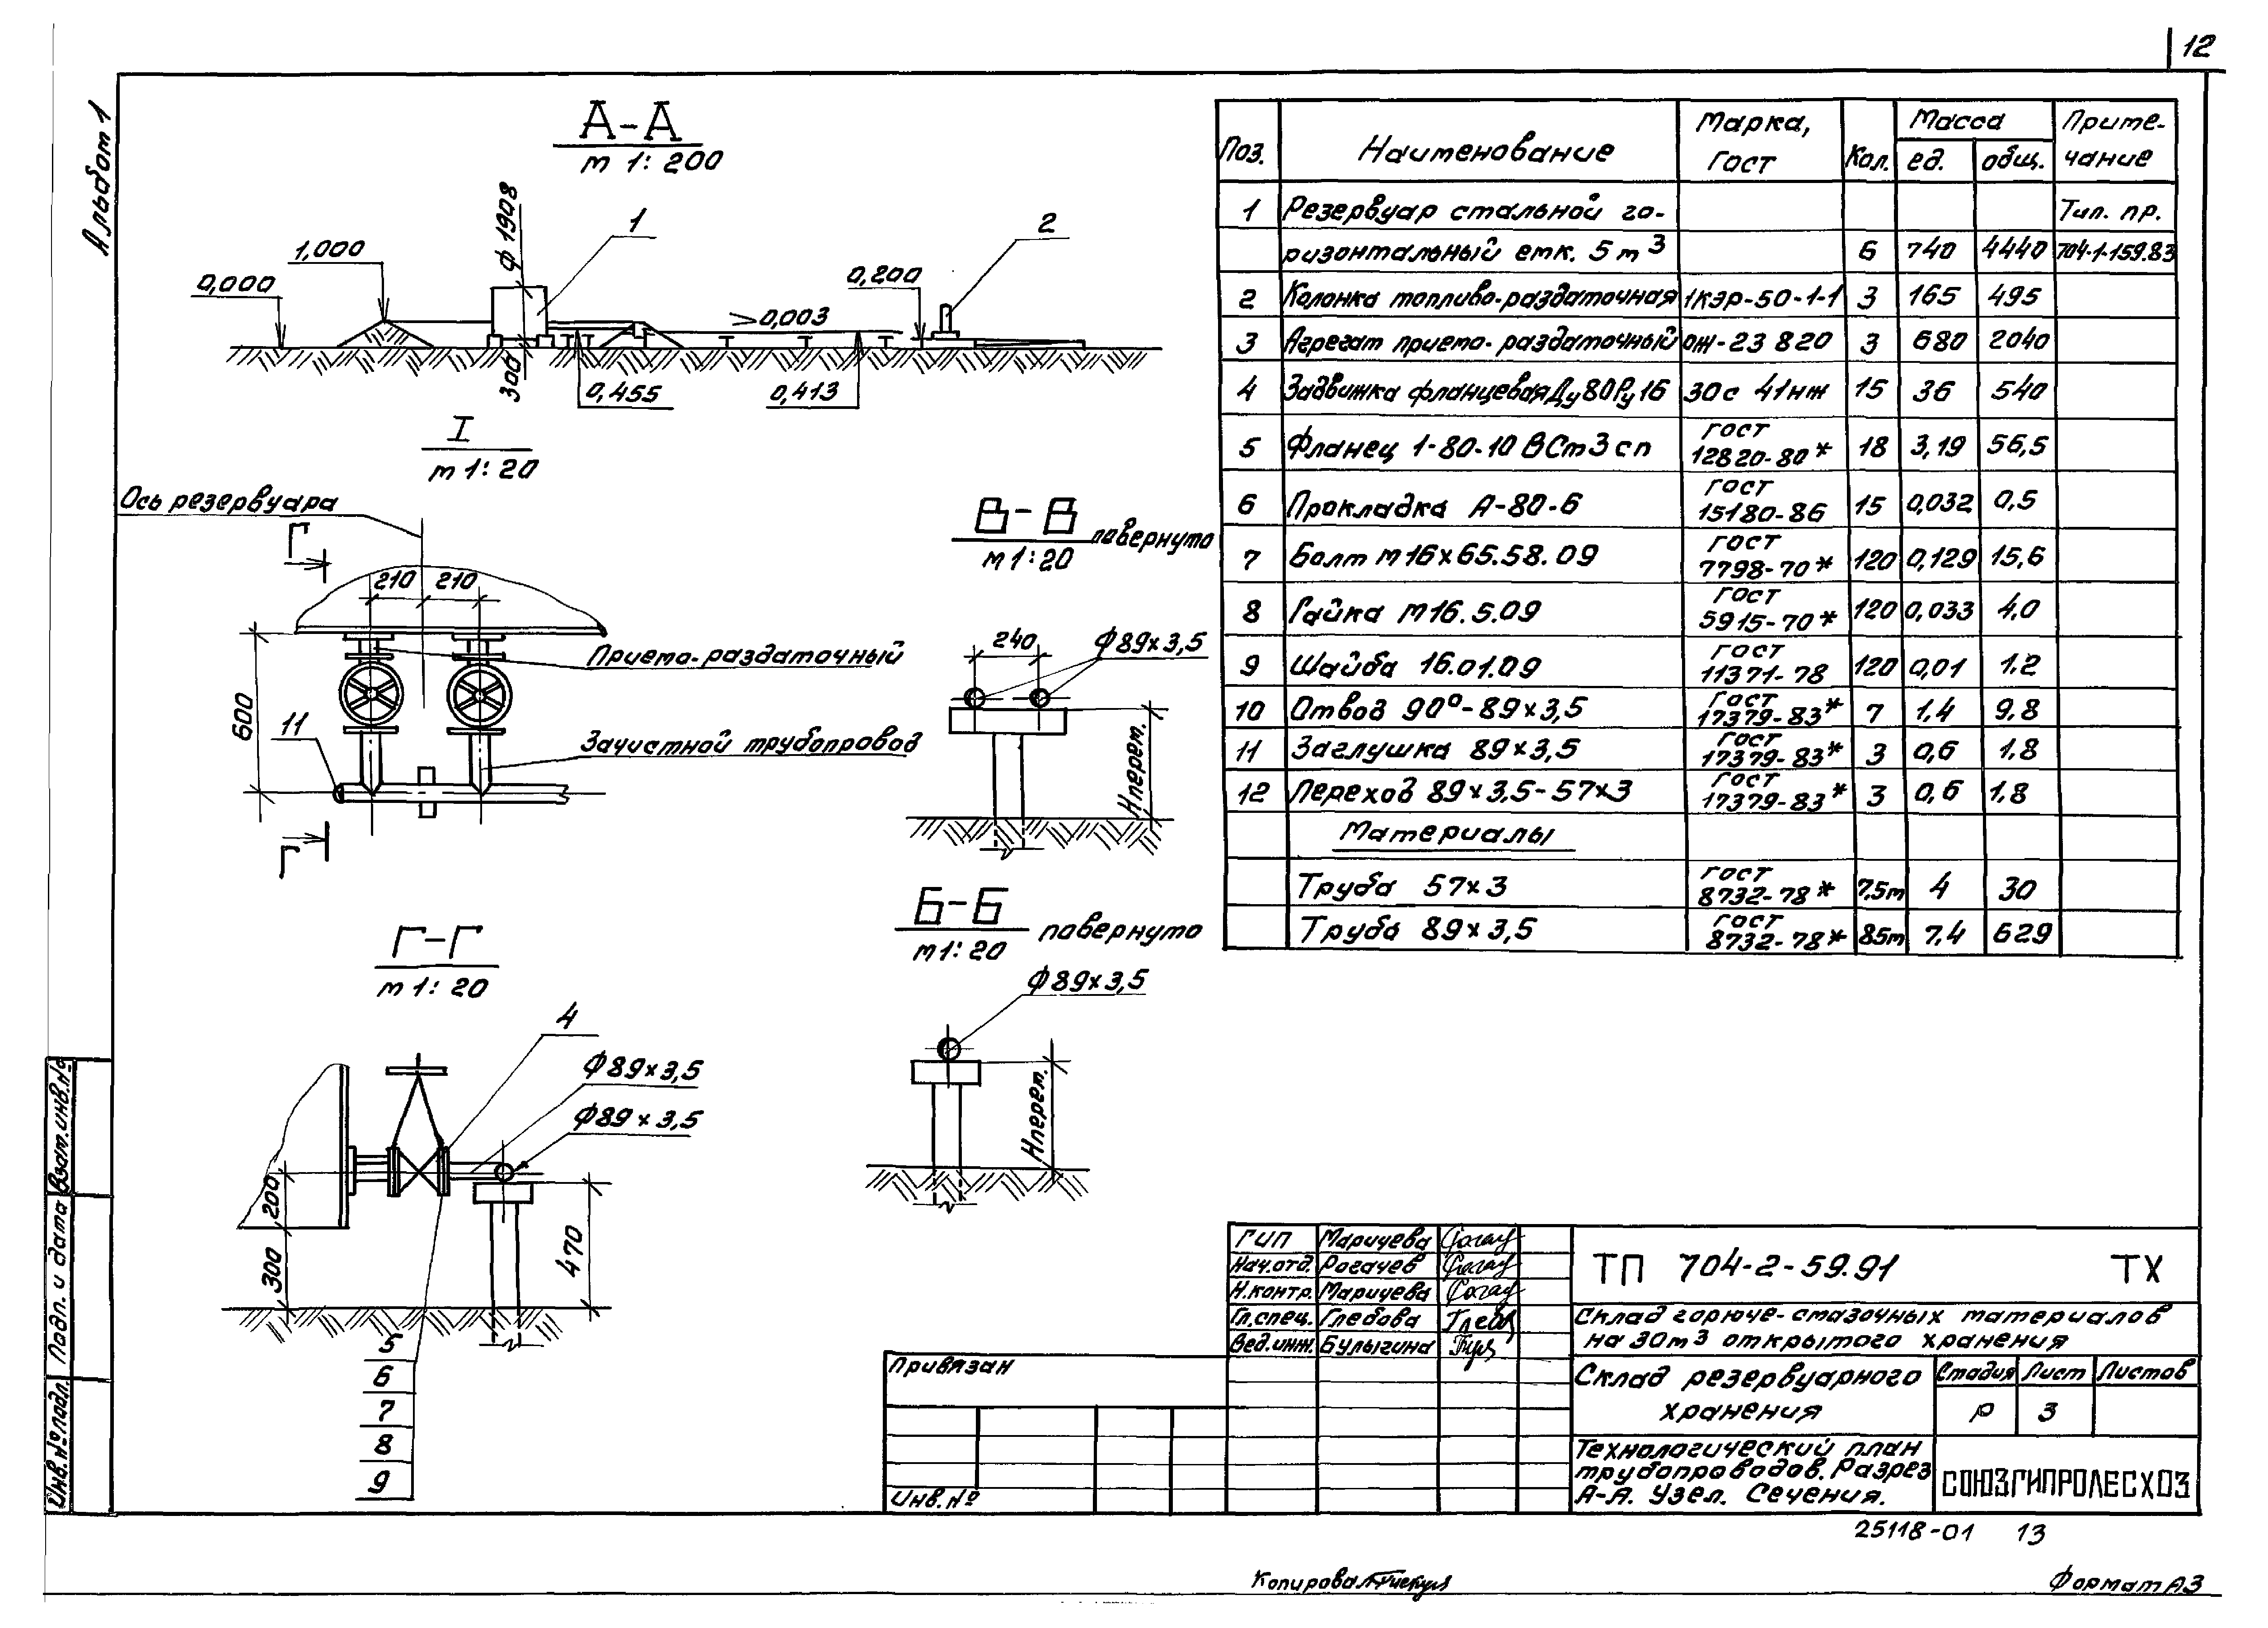 12
Альбот 1
А-А
т 1:200
ф 1908
1
2
1,000
0,000
0,200
>0,003
300
0,455
0,413
I
т 1:20
Ось резервуара
Г
210 210
Прието-раздаточный
600
11
Зачистной трубопровод
Г
В-В повернуто
т 1:20
240
ф89х3,5
Нперет.
Г-Г
т 1:20
4
ф89х3,5
ф89х3,5
200
300
470
5
6
7
8
9
Б-Б повернуто
т 1:20
ф89х3,5
Нперет.
Поз. Наитенование Марка, ГОСТ Кол. Масса ед. общ. Приме-чание
1 Резервуар стальной го- Тип. пр.
ризонтальный етк. 5т³ 6 740 4440 704-1-159.83
2 Колонка топливо-раздаточная 1КЭР-50-1-1 3 165 495
3 Агрегат прието-раздаточный ОЖ-23 820 3 680 2040
4 Задвижка фланцевая Ду80Ру16 30с 41нж 15 36 540
5 Фланец 1-80-10 ВСт3сп ГОСТ 12820-80* 18 3,19 56,5
6 Прокладка А-80-6 ГОСТ 15180-86 15 0,032 0,5
7 Болт М16х65.58.09 ГОСТ 7798-70* 120 0,129 15,6
8 Гайка М16.5.09 ГОСТ 5915-70* 120 0,033 4,0
9 Шайба 16.01.09 ГОСТ 11371-78 120 0,01 1,2
10 Отвод 90°-89х3,5 ГОСТ 17379-83* 7 1,4 9,8
11 Заглушка 89х3,5 ГОСТ 17379-83* 3 0,6 1,8
12 Переход 89х3,5-57х3 ГОСТ 17379-83* 3 0,6 1,8
Материалы
Труба 57х3 ГОСТ 8732-78* 7,5т 4 30
Труба 89х3,5 ГОСТ 8732-78* 85т 7,4 629
ГИП Маричева
Нач.отд. Рогачев
Н.контр. Маричева
Гл.спец. Глебова
Вед.инж. Булыгина
ТП 704-2-59.91 ТХ
Склад горюче-смазочных материалов
на 30т³ открытого хранения
Склад резервуарного
хранения
Стадия Лист Листов
Р 3
Технологический план
трубопроводов. Разрез
А-А. Узел. Сечения.
СОЮЗГИПРОЛЕСХОЗ
Привязан
Инв.№
Взам.инв.№
Подп. и дата
Инв.№подл.
25118-01 13
Копировал
Формат А3